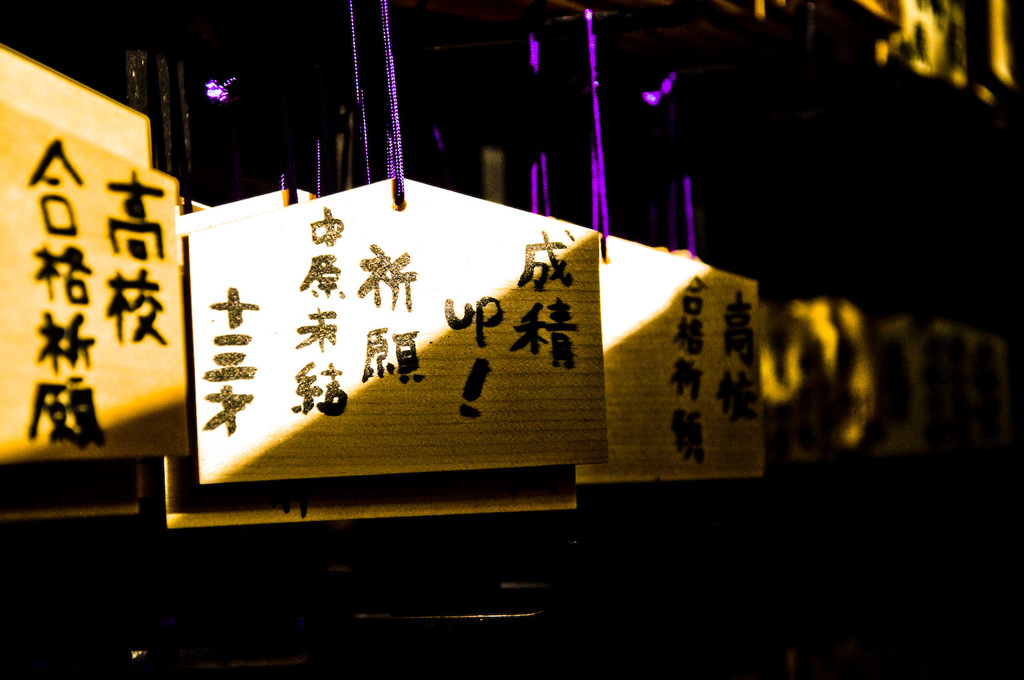 高校
合格祈願
成積
UP!
祈願
中原未結
十三才
高校
合格祈願